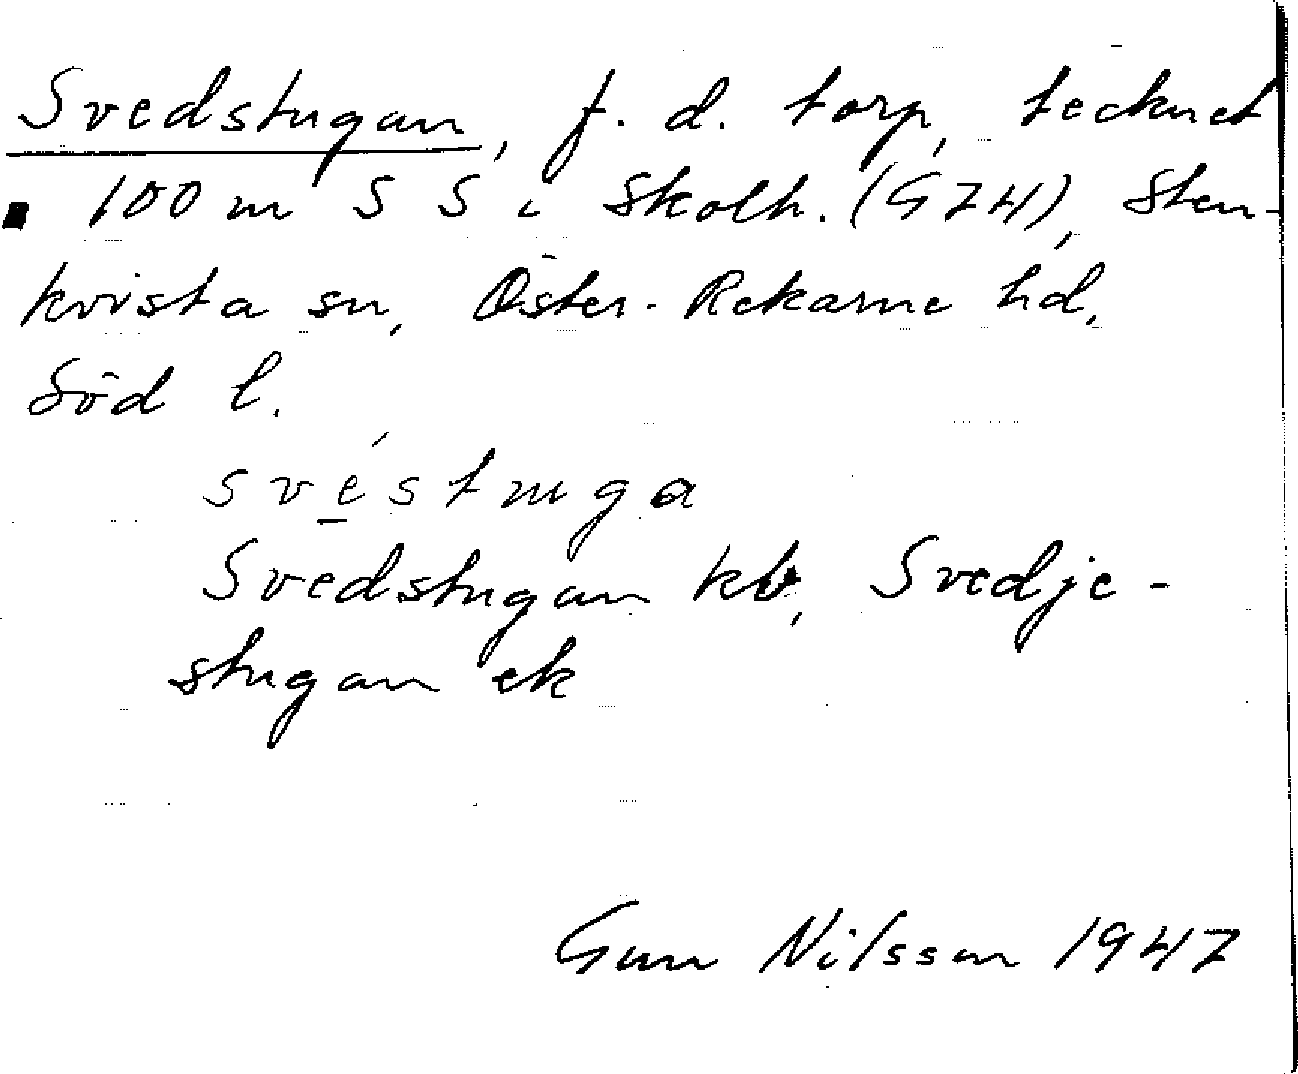 Svedstugan, f. d. torp, tecknet
▪ 100 m S S i Skolh. (G7H), Sten-
kvista sn, Öster-Rekarne hd,
Söd l.
svéstuga
Svedstugan kb, Svedje-
stugan ek
Gun Nilsson 1947